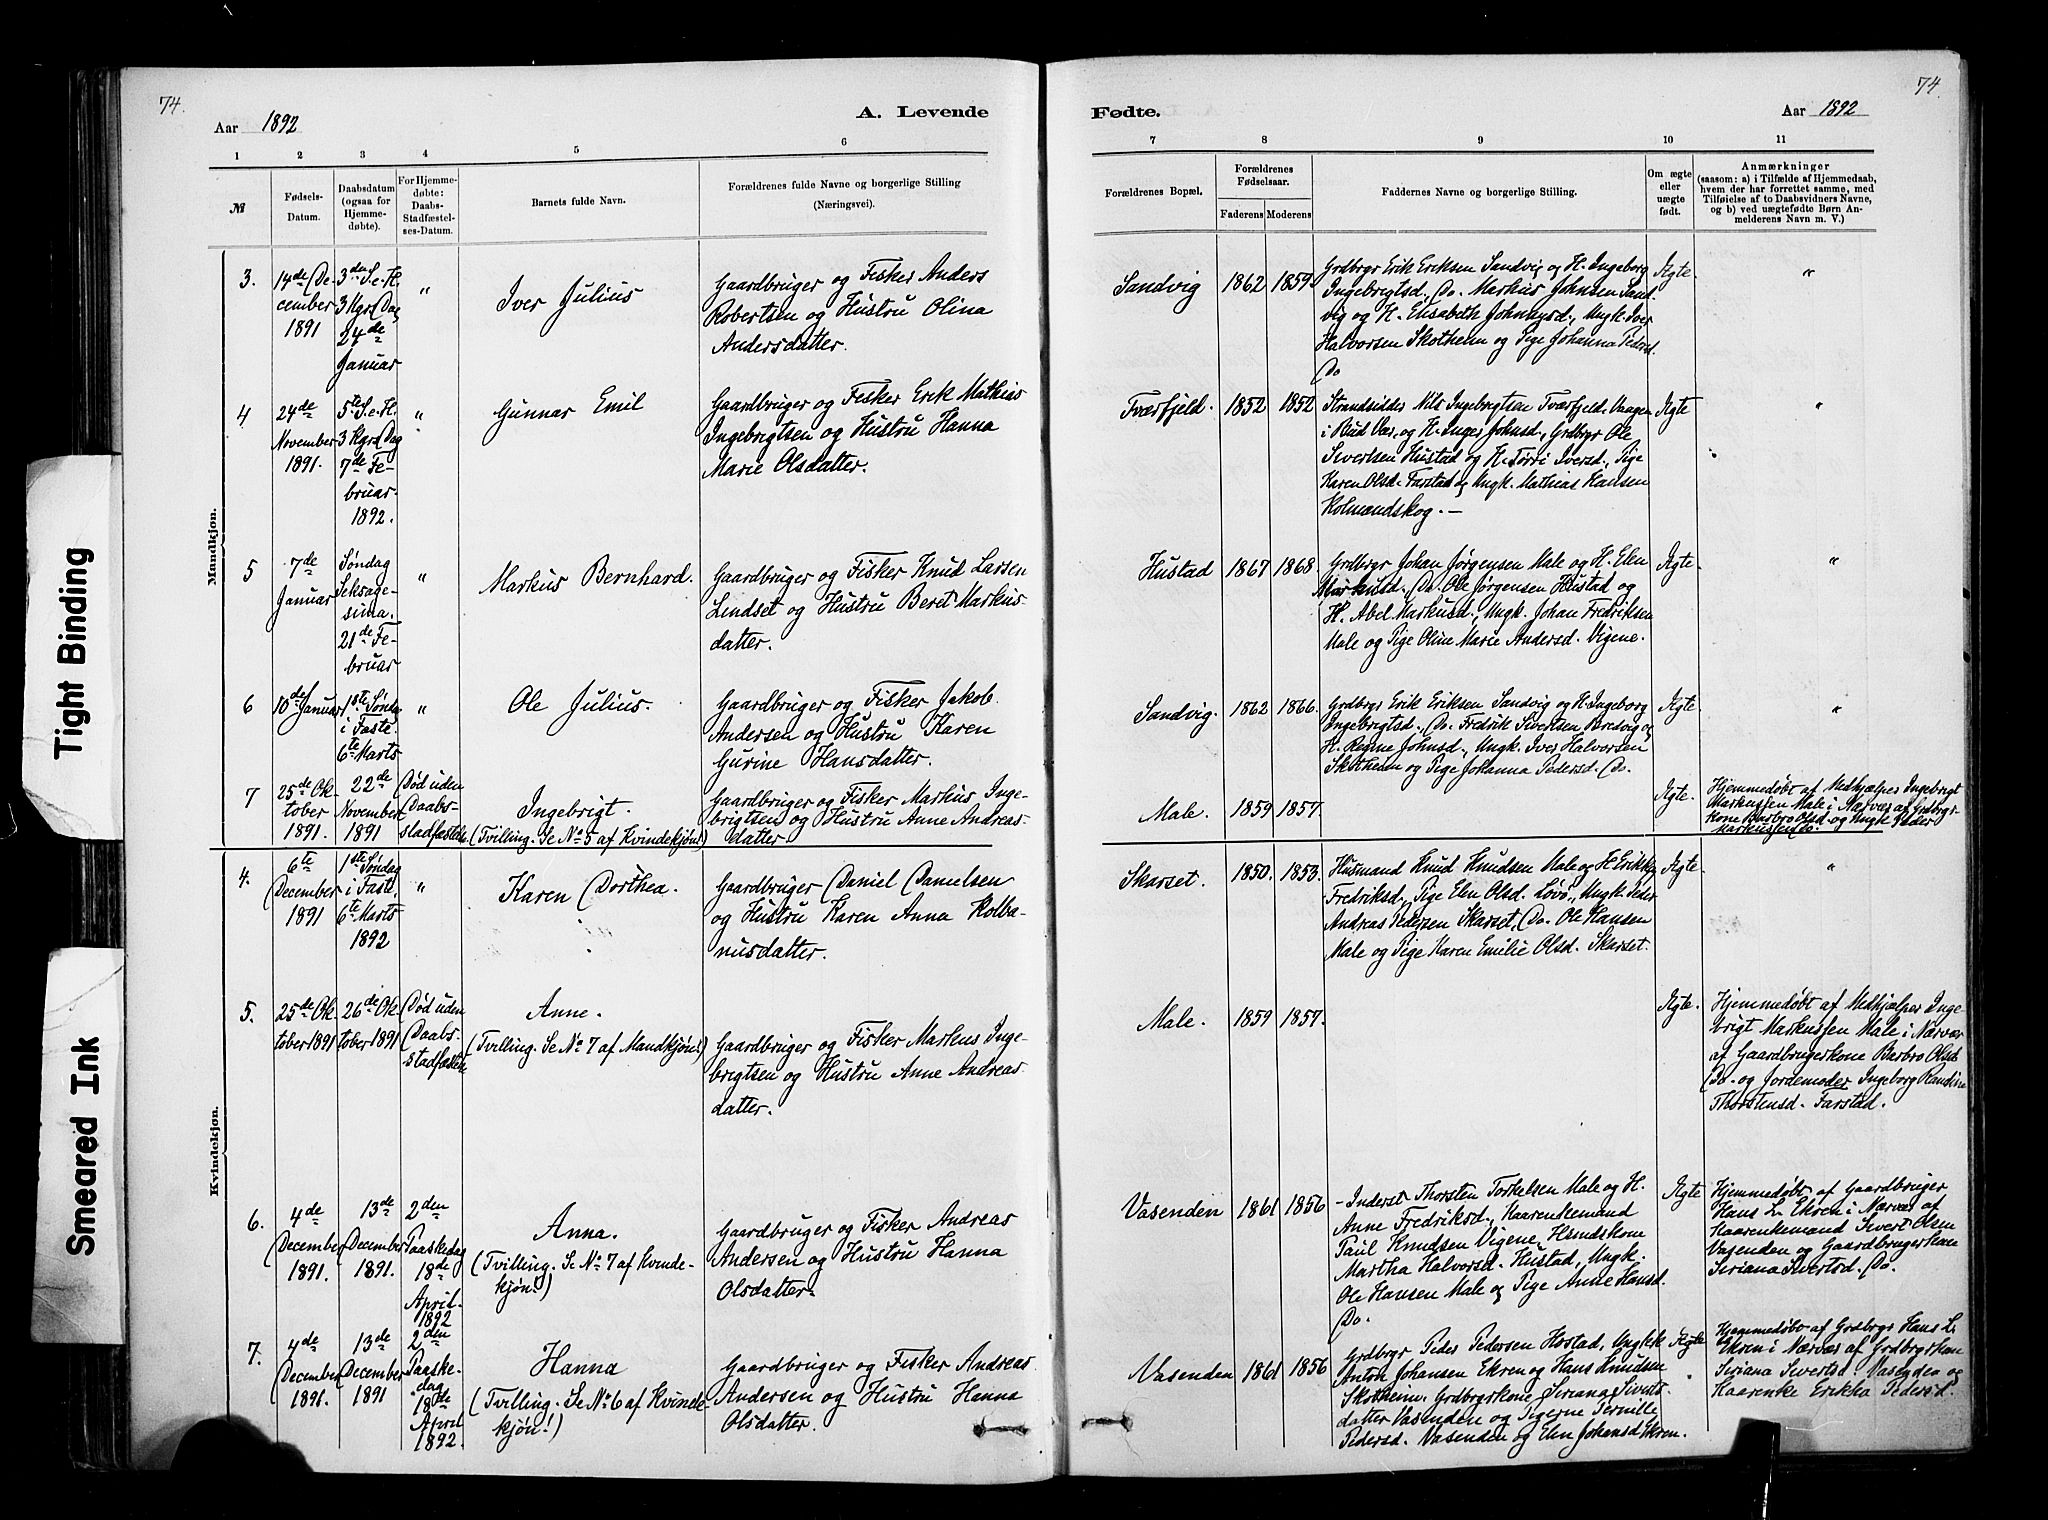 74.
Aar 1892
A. Levende
1 2 3 4 5 6
№
Fødsels-
Datum.
Daabsdatum
(ogsaa for
Hjemme-
døbte).
For Hjemme-
døbte:
Daabs-
Stadfæstel-
ses-Datum.
Barnets fulde Navn.
Forældrenes fulde Navne og borgerlige Stilling
(Næringsvei).
Mandkjøn.
3.
14de De-
cember
1891
3den S. e. H.
3 Kgrs Dag
24de
Januar
"
Iver Julius
Gaardbruger og Fisker Anders
Robertsen og Hustru Olina
Andersdatter.
4
24de
November
1891.
5te S. e. H.
3 Kgrs Dag
7de Fe-
bruar.
1892.
"
Gunnar Emil
Gaardbruger og Fisker Erik Mathias
Ingebrigtsen og Hustru Hanna
Marie Olsdatter.
5
7de
Januar
Søndag
Seksage-
sima.
21de Fe-
bruar
"
Markus Bernhard.
Gaardbruger og Fisker Knud Larsen
Lindset og Hustru Beret Markus-
datter.
6
10de Januar
1ste Sønda
i Faste.
6te Marts
"
Ole Julius.
Gaardbruger og Fisker Jakob
Andersen og Hustru Karen
Gurine Hansdatter.
7
25de Ok-
tober
1891.
22de
November
1891
Død uden
Daabs-
stadfæstelse.
Ingebrigt.
(Tvilling. Se No 5 af Kvindekjøn!)
Gaardbruger og Fisker Markus Inge-
brigtsen og Hustru Anne Andreas-
datter.
Kvindekjøn.
4.
6te
December
1891
1ste Søndag
i Faste,
6te Marts
1892
"
Karen Dorthea.
Gaardbruger Daniel Danielsen
og Hustru Karen Anna Kolba-
nusdatter.
5.
25de Ok-
tober 1891
26de Ok-
tober 1891
Død uden
Daabs-
stadfæstelse
Anne.
(Tvilling. Se No 7 af Mandkjøn!)
Gaardbruger og Fisker Markus Inge-
brigtsen og Hustru Anne Andreas-
datter.
6.
4de
December
1891.
13de
December
1891.
2den
Paaskedag
18de
April.
1892
Anna.
(Tvilling. Se No 7 af Kvinde-
kjøn!)
Gaardbruger og Fisker Andreas
Andersen og Hustru Hanna
Olsdatter.
7.
4de
December
1891.
13de
December
1891
2den
Paaske-
dag
18de
April
1892.
Hanna
(Tvilling. Se No 6 af Kvinde-
kjøn!)
Gaardbruger og Fisker Andreas
Andersen og Hustru Hanna
Olsdatter.
74.
Fødte.
Aar 1892
7 8 9 10 11
Forældrenes Bopæl.
Forældrenes
Fødselsaar.
Faderens Moderens
Faddernes Navne og borgerlige Stilling.
Om ægte
eller
uægte
født.
Anmærkninger
(saasom: a) i Tilfælde af Hjemmedaab,
hvem der har forrettet samme, med
Tilføielse af to Daabsvidners Navne,
og b) ved uægtefødte Børn An-
melderens Navn m. V.)
Sandvig
1862
1859.
Grdbrgr Erik Eriksen Sandvig og H. Ingeborg
Ingebrigtsd., Do. Markus Johnsen Sand-
vig og H. Elisabeth Johnnysd., Ungk. Iver
Halvorsen Skotheim og Pige Johanna Pedersd.
Do
Ægte
"
Tværfjeld.
1852
1852
Strandsidder Nils Ingebrigtsen Tværfjeld-Vaagen
i Bud Vær, og H. Inger Johnsd., Grdbrgr Ole
Sivertsen Hustad og H. Torri Iversd., Pige
Karen Olsd. Farstad og Ungk. Mathias Hansen
Kolmandskog. —
Ægte
"
Hustad
1867
1868
Grdbrgr Johan Jørgensen Male og H. Elen
Markusd. Do. Ole Jørgensen Hustad og
H. Abel Markusd., Ungk. Johan Fredriksen
Male og Pige Oline Marie Andersd. Vigene.
Ægte.
"
Sandvig.
1862
1866.
Grdbrgr Erik Eriksen Sandvig og H. Ingeborg
Ingebrigtsd., Do. Fredrik Sivertsen Bredvig og
H. Regine Johnsd., Ungk. Iver Halvorsen
Skotheim og Pige Johanna Pedersd. Do.
Ægte.
"
Male.
1859
1857.
Ægte.
Hjemmedøbt af Medhjælper Ingebrigt
Markussen Male i Nærvær af Grdbrgr-
kone Barbro Olsd. og Ungk Peder
Markussen Do.
Skarset.
1850.
1853.
Husmand Knud Knudsen Male og H. Erikka
Fredriksd., Pige Elen Olsd. Løvø, Ungk. Peder
Andreas Pedersen Skarset, Do. Ole Hansen
Male og Pige Karen Emilie Olsd. Skarset.
Ægte.
"
Male.
1859
1857.
Ægte.
Hjemmedøbt af Medhjælper Inge-
brigt Markussen Male i Nærvær
af Gaardbrugerkone Berbro Olsd.
Do. og Jordemoder Ingeborg Randine
Thorstensd. Farstad.
Vasenden
1861
1856
- Inderst Thorsten Torkelsen Male og H.
Anne Fredriksd., Kaarenkemand
Paul Knudsen Vigene, Hsmdskone
Martha Halvorsd. Hustad, Ungk.
Ole Hansen Male og Pige Anne Hansd.
Do.
Ægte
Hjemmedøbt af Gaardbruger
Hans L. Ekren i Nærvær af
Kaarenkemand Sivert Olsen
Vasenden og Gaardbrugerkone
Seriana Sivertsd. Do.
Vasenden
1861
1856
Grdbrgr Peder Pedersen Hostad, Ungkk
Anton Johansen Ekren og Hans Knudsen
Skotheim. Grdbrgrkone Seriana Siverts-
datter Vasenden og Pigerne Pernille
Pedersd. Vasenden og Elen Johansd Ekren.
Ægte
Hjemmedøbt af Grdbrgr Hans L.
Ekren i Nærvær af Grdbrgrkone
Seriana Sivertsd. Vasenden og
Kaarenke Erikka Pedersd.
Tight Binding
Smeared Ink